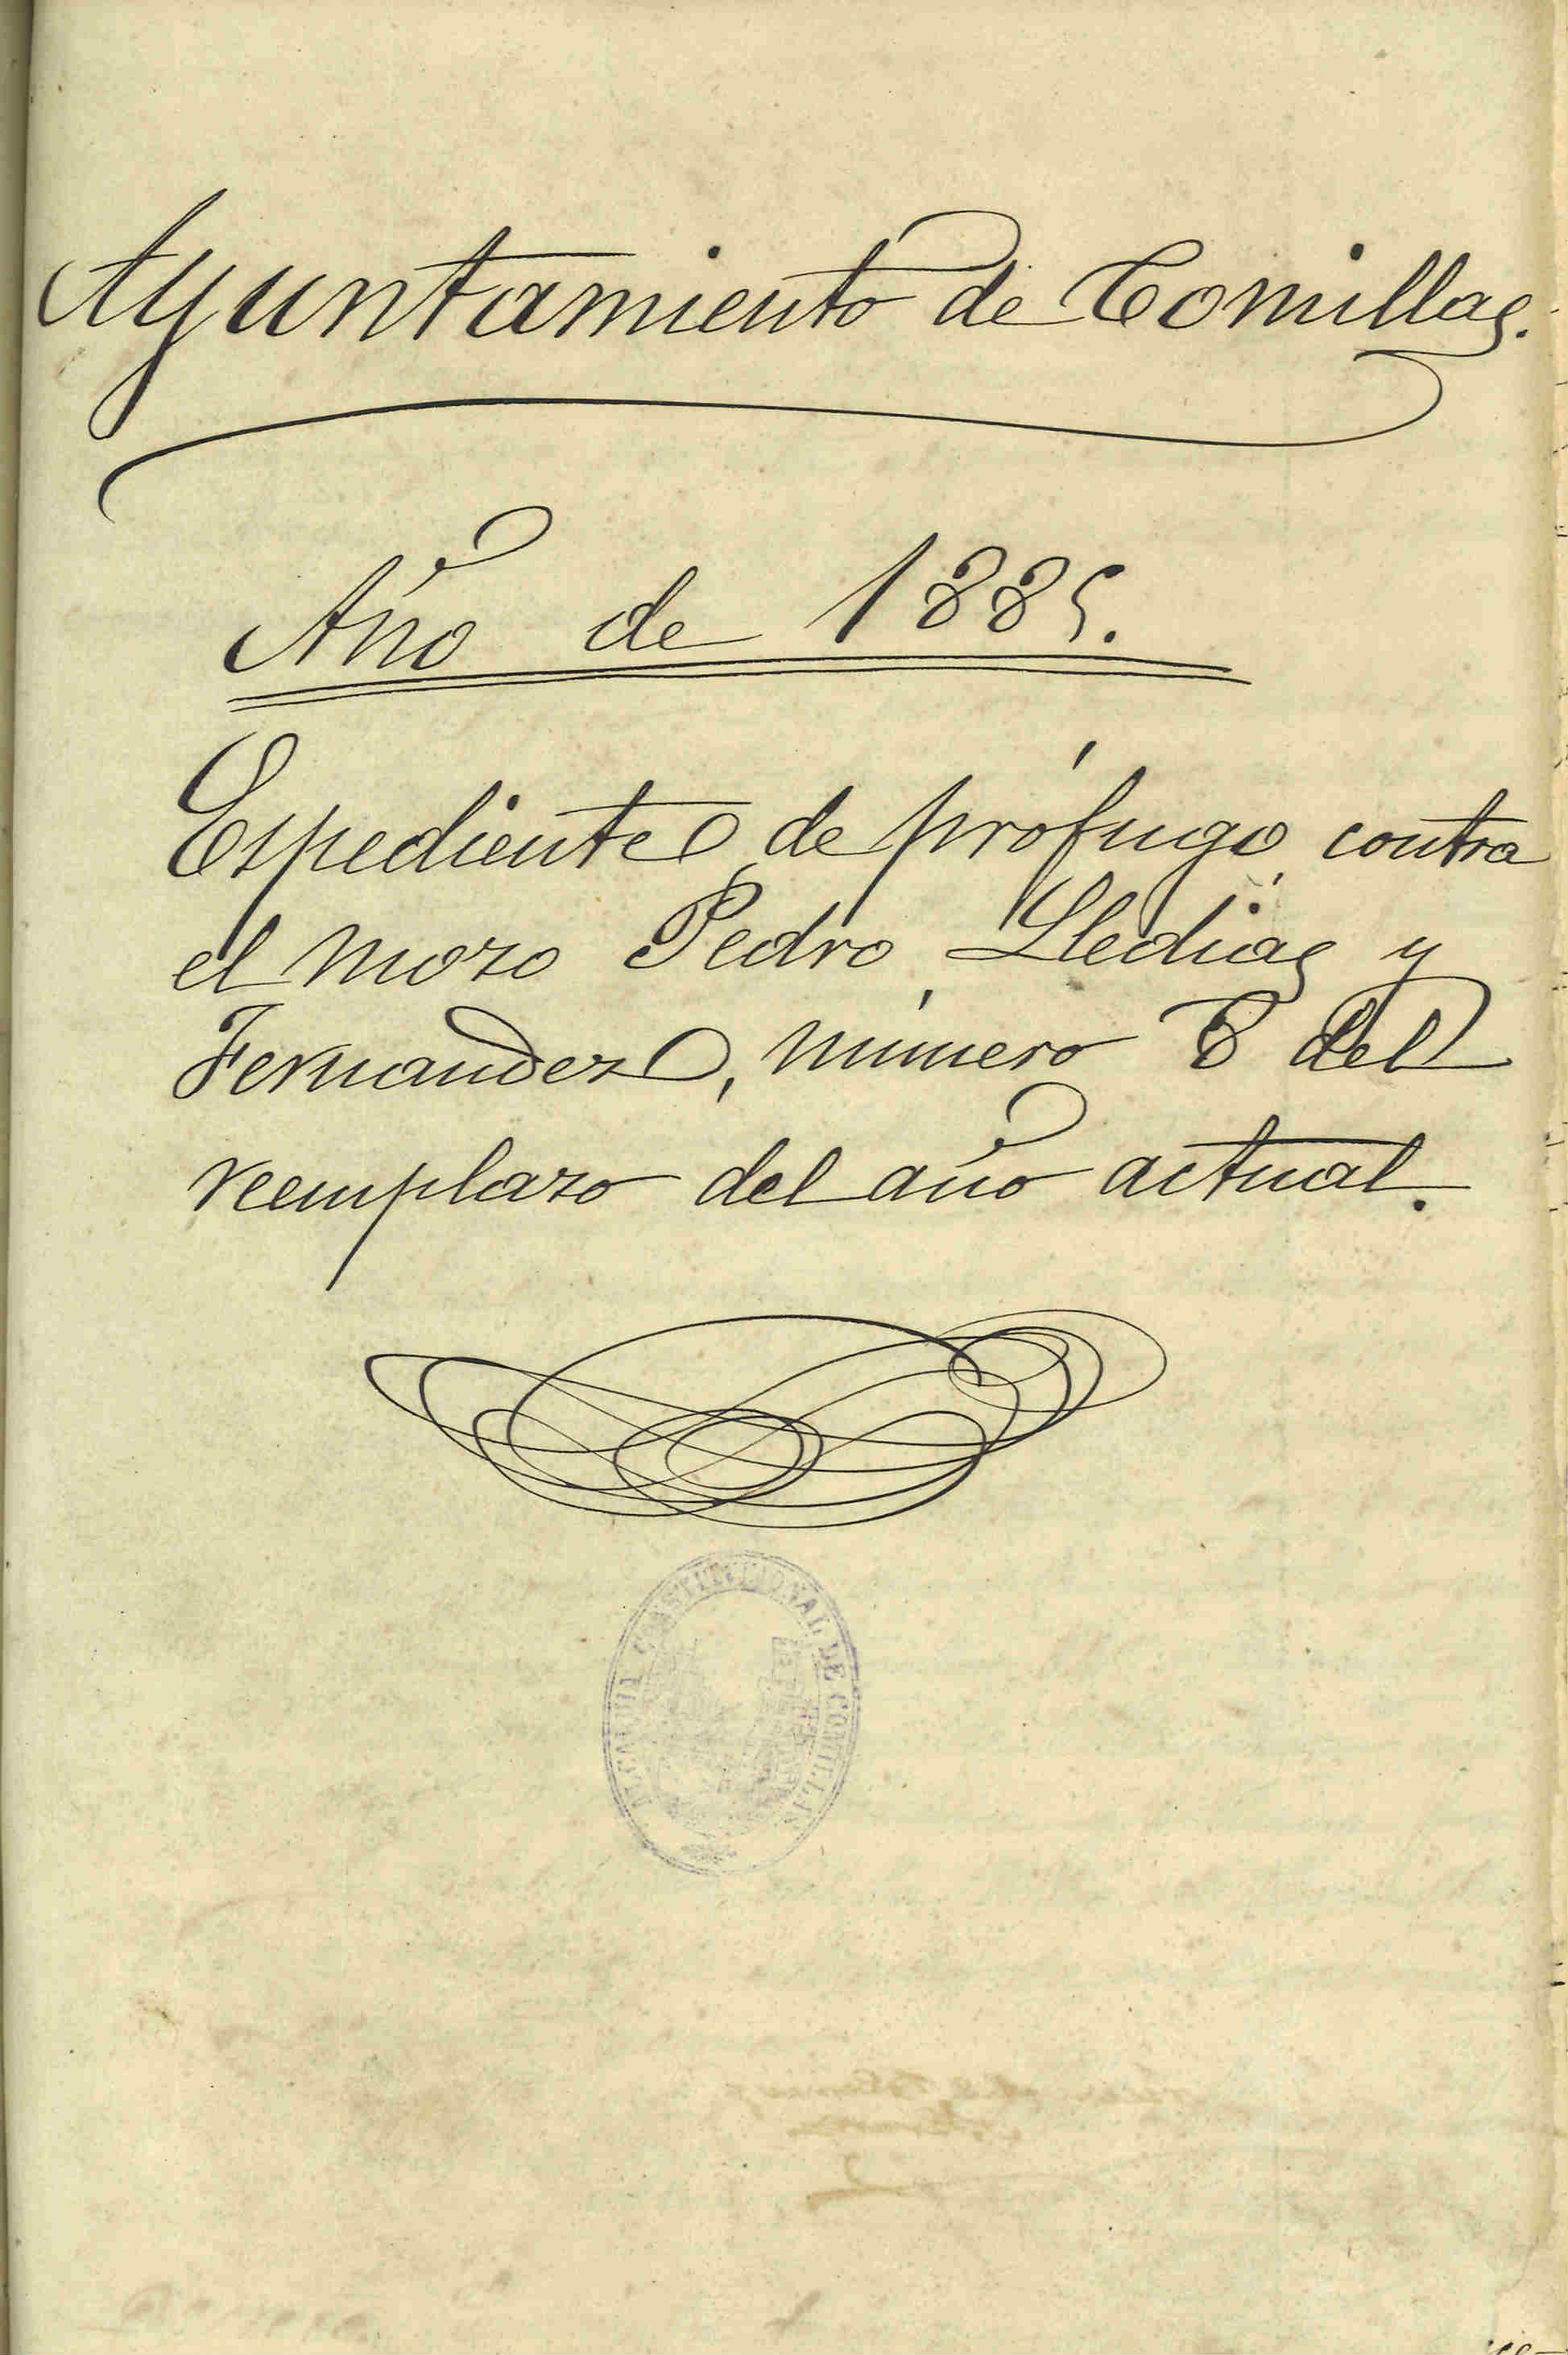 Ayuntamiento de Comillas.
Año de 1885.
Espediente de prófugo contra
el mozo Pedro Lledias y
Fernandez, número 8 del
reemplazo del año actual.
ALCALDIA CONSTITUCIONAL DE COMILLAS